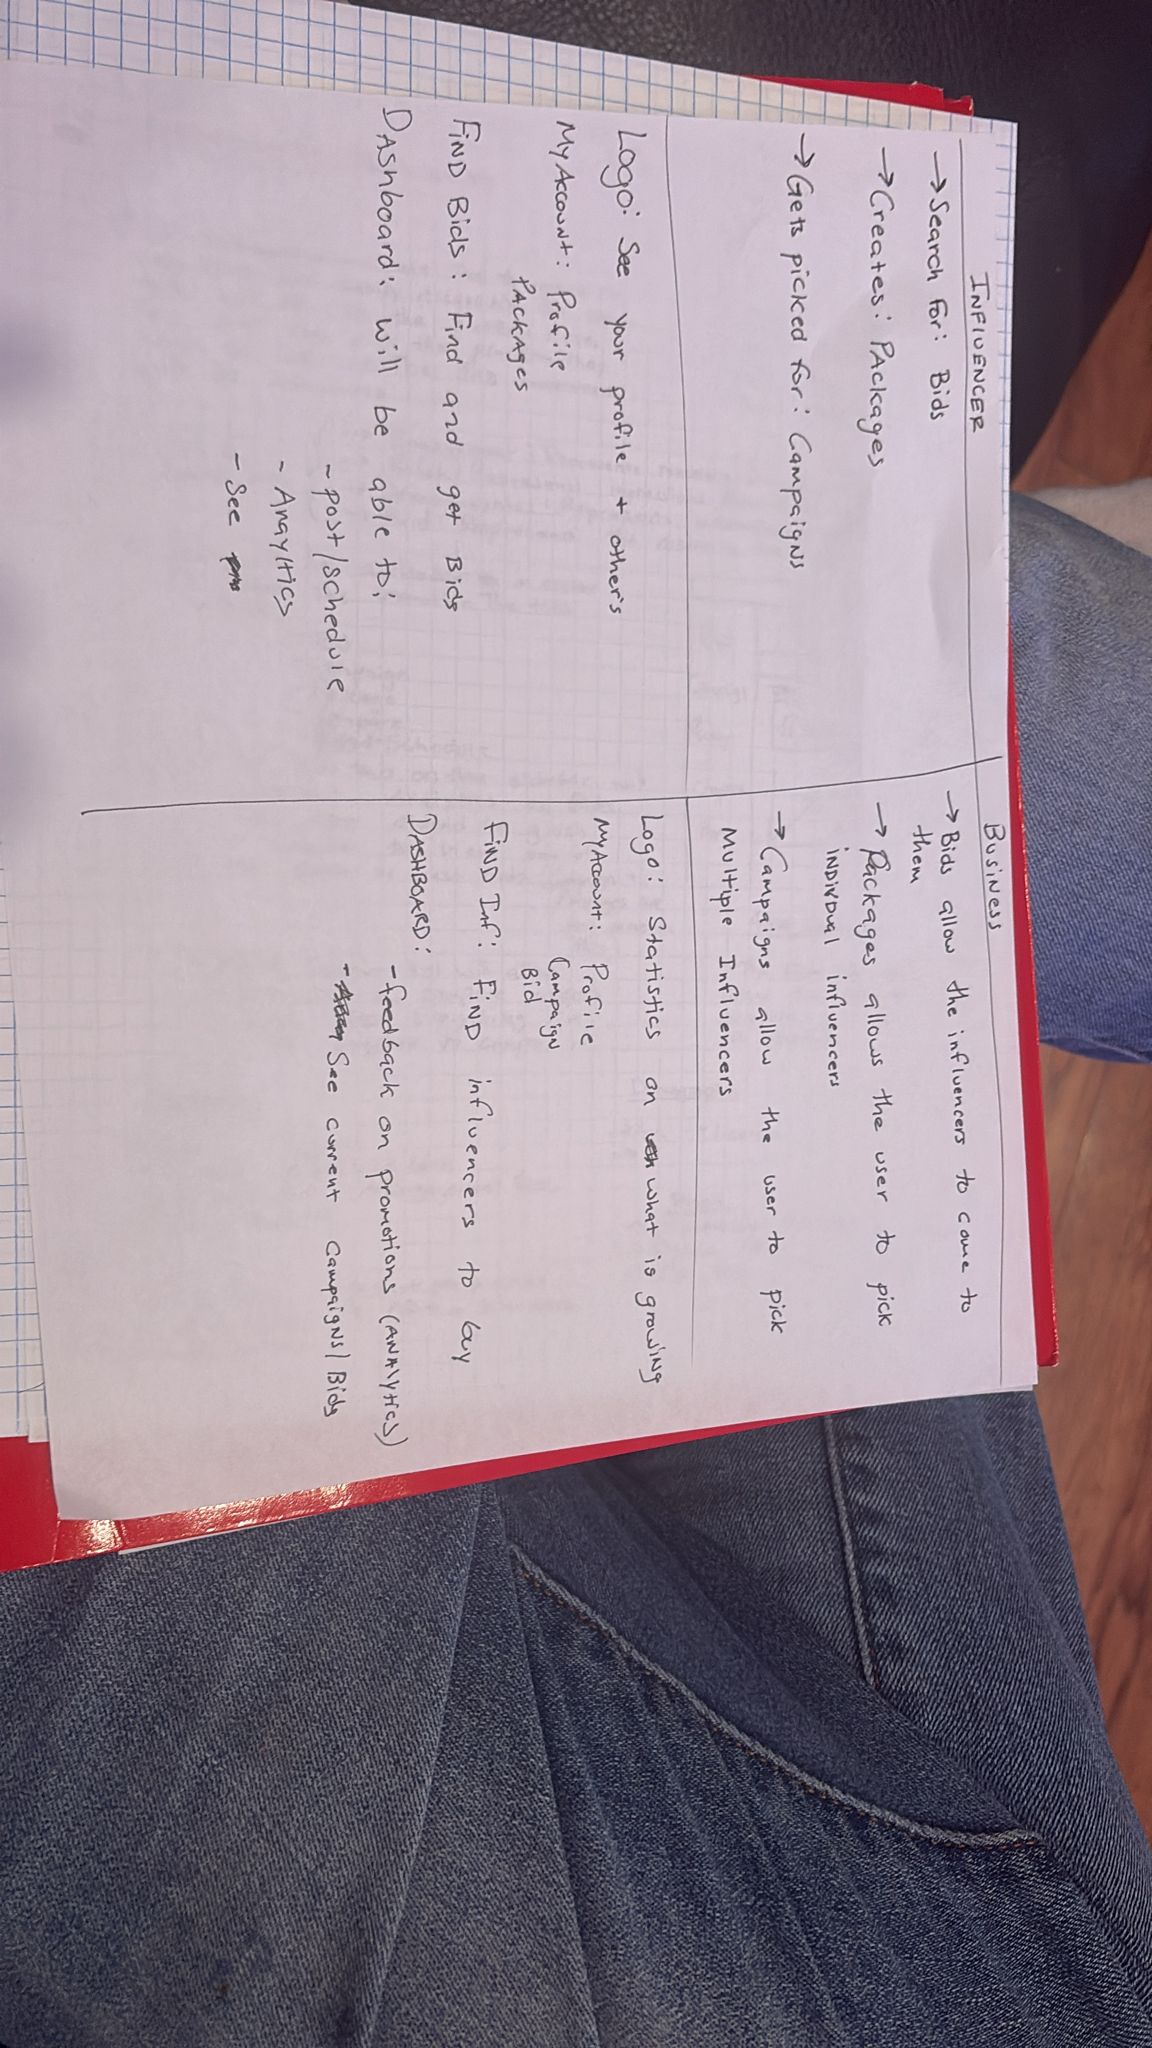 INFLUENCER
→ Search for: Bids
→ Creates: PAckages
→ Gets picked for: Campaigns
Logo: See your profile + other's
My Account: Profile
PACkAges
FIND Bids: Find and get Bids
DAShboard: will be able to:
- post/schedule
- Anayltics
- See
Business
→ Bids allow the influencers to come to
them
→ Packages allows the user to pick
INDIVDUAl influencers
→ Campaigns allow the user to pick
Multiple Influencers
Logo: Statistics on what is growing
My Account: Profile
Campaign
Bid
FIND Inf: FIND influencers to buy
DASHBOARD:
- feedback on promotions (ANAlytics)
- See current campaigns/Bids